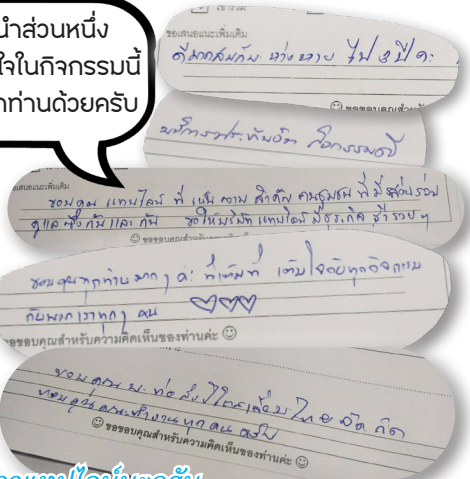 นำส่วนหนึ่ง
ใจในกิจกรรมนี้
กท่านด้วยครับ
เข้าร่วม
ขอเสนอแนะเพิ่มเติม
ดีมากสมกับ ห่างหาย ไป 3 ปี
ขอขอบคุณสำหรับ
บริการประทับจิต กิจกรรมดี
เสนอแนะเพิ่มเติม
ขอบคุณ แทปไลน์ ที่ เห็นความ สำคัญ คนชุมชน ที่ มีส่วนร่วม
ดูแล ซึ่งกันและ กัน ขอให้บริษัท แทปไลน์ มีธุรกิจ ร่ำรวย ๆ
ขอขอบคุณสำหรับความคิดเห็นของท่านค่ะ
ขอบคุณทุกท่านมาก ๆ ค่ะ ที่เต็มที่ เต็มใจกับทุกกิจกรรม
กับพวกเราทุกๆ คน ♡♡♡
ขอขอบคุณสำหรับความคิดเห็นของท่านค่ะ ☺
ขอบคุณ บ. ท่อส่งปิโตรเลียมไทย จำกัด
ขอบคุณคณะทำงานทุกคนครับ
☺ ขอขอบคุณสำหรับความคิดเห็นของท่านค่ะ ☺